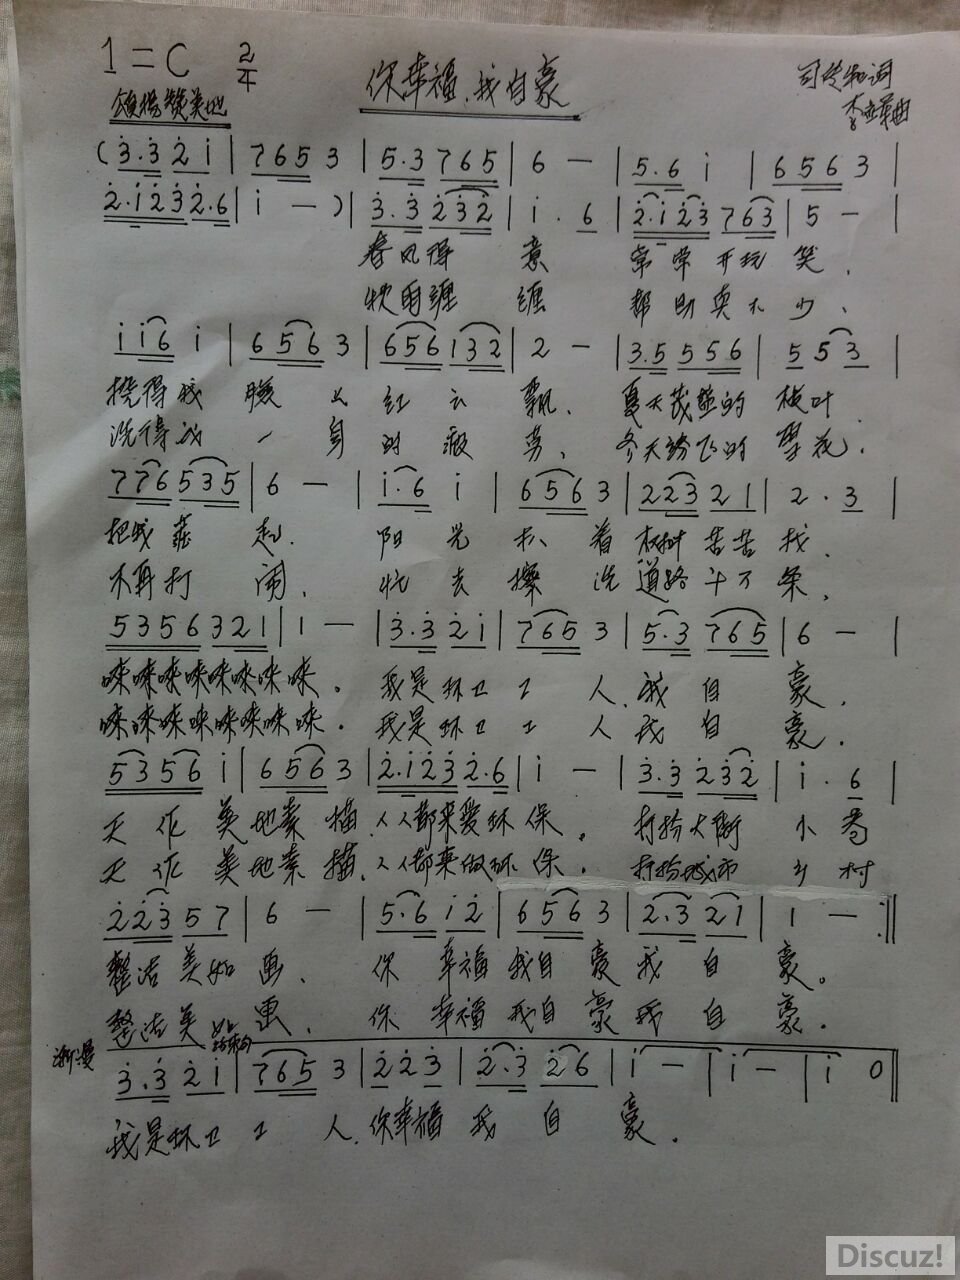 1=C 2/4 你幸福,我自豪
颂扬赞美地 词
李 曲
(3̇.3̇ 2̇ i | 7 6 5 3 | 5.3 7 6 5 | 6 — | 5.6 i | 6 5 6 3 |
2̇.i 2̇ 3̇ 2̇.6 | i — ) | 3̇.3̇ 2̇ 3̇ 2̇ | i . 6 | 2̇.i 2̇ 3̇ 7 6 3 | 5 — |
春风得 意 常常开玩 笑,
秋雨缠 缠 帮助真不 少,
i i 6 i | 6 5 6 3 | 6 5 6 1 3 2 | 2 — | 3.5 5 5 6 | 5 5 3 |
挠得我 脸 上 红 云 飘, 夏天茂盛的 枝叶
洗得我 一 身 的 疲 劳, 冬天纷飞的 雪花,
7 7 6 5 3 5 | 6 — | i.6 i | 6 5 6 3 | 2 2 3 2 1 | 2 . 3 |
把我 起, 阳光 着 树 苦苦 找,
不再打 闹, 忙去擦洗道路千万条,
5 3 5 6 3 2 1 | 1 — | 3̇.3̇ 2̇ i | 7 6 5 3 | 5.3 7 6 5 | 6 — |
唻唻唻唻唻唻唻 唻。 我是环卫 工 人,我 自 豪,
唻唻唻唻唻唻唻 唻。 我是环卫 工 人 我 自 豪,
5 3 5 6 i | 6 5 6 3 | 2̇.i 2̇ 3̇ 2̇.6 | i — | 3̇.3̇ 2̇ 3̇ 2̇ | i . 6 |
天作 美 地素 描,人人都来爱环 保。 打扮大街 小 巷
天作 美 地素 描,人人都来做环 保。 打扮城市 乡 村
2̇ 2̇ 3̇ 5 7 | 6 — | 5.6 i 2̇ | 6 5 6 3 | 2.3 2 1 | 1 — :||
整洁 美如 画, 你 幸福 我自 豪 我 自 豪。
整洁 美如 画, 你 幸福 我自 豪 我 自 豪。
渐慢 结束句
3̇.3̇ 2̇ i | 7 6 5 3 | 2̇ 2̇ 3̇ | 2̇.3̇ 2̇ 6 | i — | i — | i 0 ||
我是环卫 工 人,你幸福 我 自 豪。
Discuz!